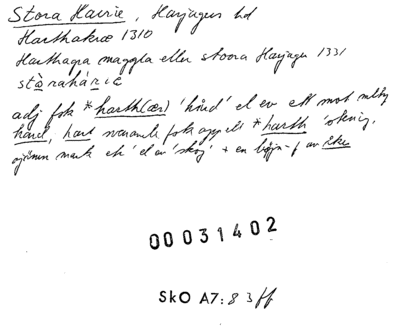 Stora Harrie, Harjagers hd
Harthakræ 1310
Harthagra maggla eller stoora Harjager 1331
stò̱rahári̱e
adj fsk *harth(ær) 'hård' el ev ett mot mlty
hard, hart svarande fsk app el *harth 'stenig,
mark etc' el ev 'skog' + en böjn-f av åke
00031402
SkO A7:83ff